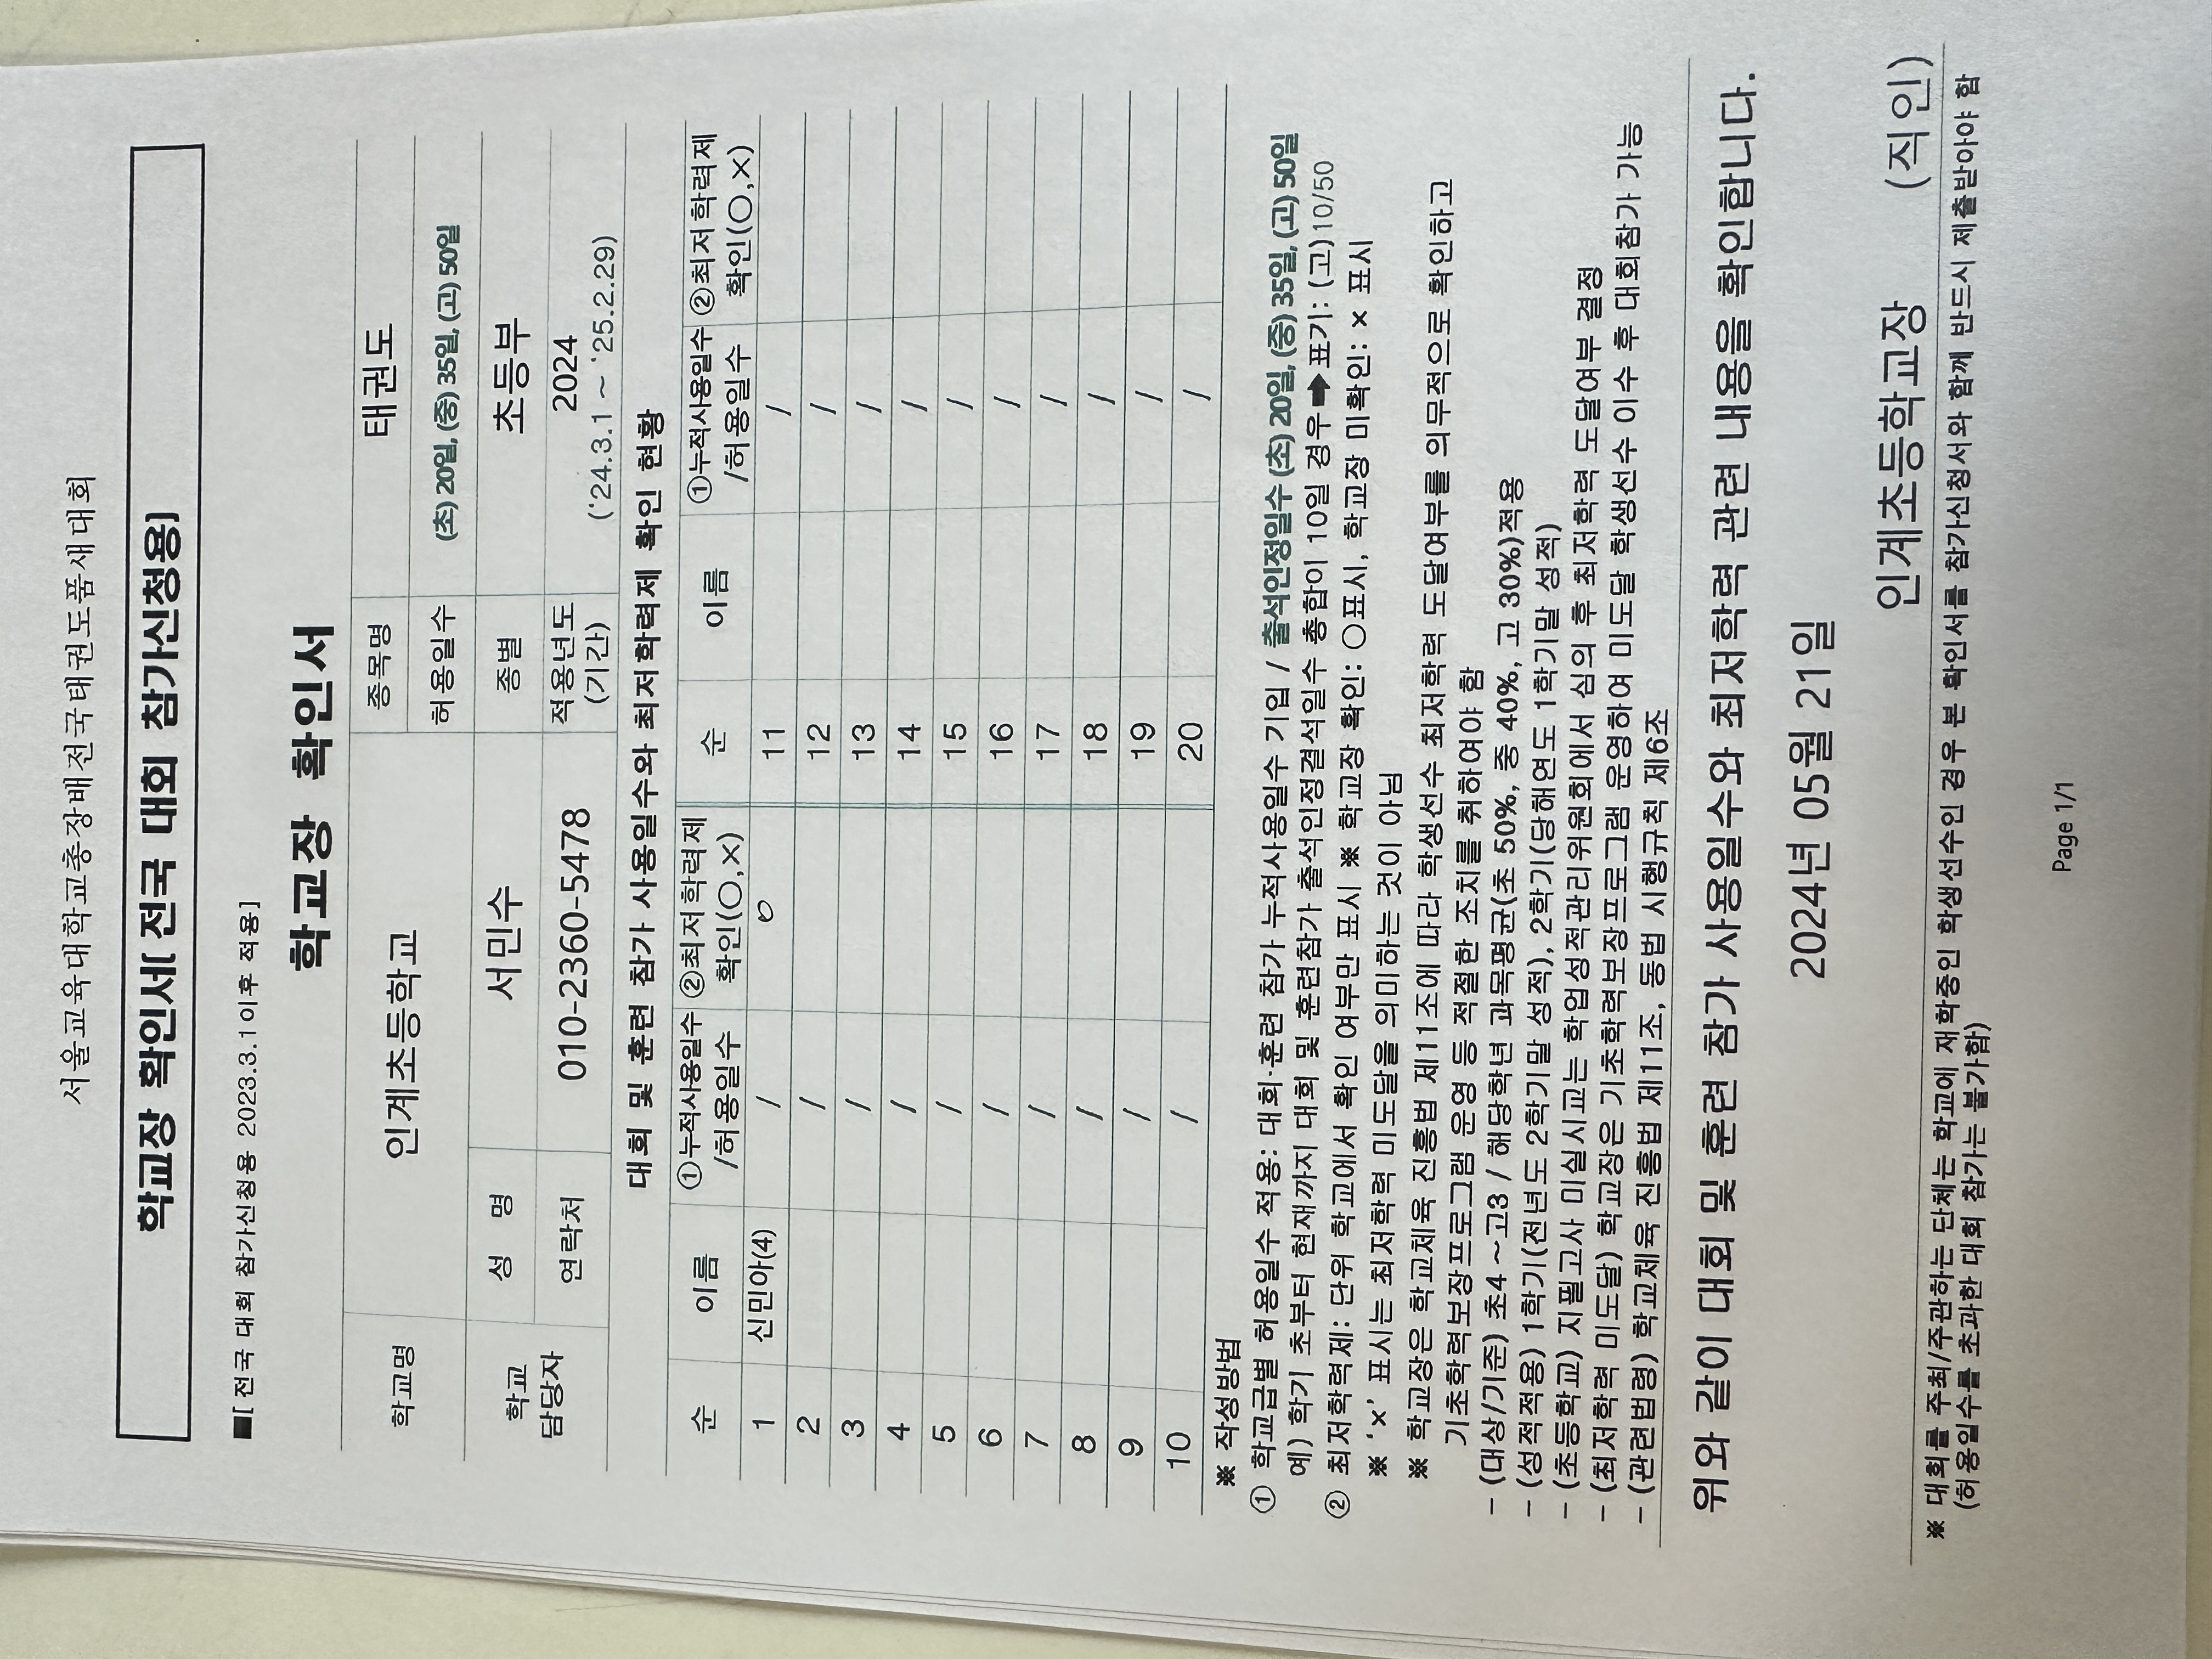 서울교육대학교총장배전국태권도품새대회
학교장 확인서[ 전국 대회 참가신청용]
■[전국 대회 참가신청용 2023.3.1이후 적용]
학교장 확인서
학교명 인계초등학교 종목명 태권도
허용일수 (초) 20일, (중) 35일, (고) 50일
학교 담당자 성 명 서민수 종별 초등부
연락처 010-2360-5478 적용년도 (기간) 2024
('24.3.1 ~ '25.2.29)
대회 및 훈련 참가 사용일수와 최저학력제 확인 현황
순 이름 ①누적사용일수 /허용일수 ②최저학력제 확인(○,×) 순 이름 ①누적사용일수 /허용일수 ②최저학력제 확인(○,×)
1 신민아(4) / ○ 11 /
2 / 12 /
3 / 13 /
4 / 14 /
5 / 15 /
6 / 16 /
7 / 17 /
8 / 18 /
9 / 19 /
10 / 20 /
※ 작성방법
① 학교급별 허용일수 적용: 대회·훈련 참가 누적사용일수 기입 / 출석인정일수 (초) 20일, (중) 35일, (고) 50일
예) 학기 초부터 현재까지 대회 및 훈련참가 출석인정결석일수 총합이 10일 경우 ➡표기: (고)10/50
② 최저학력제: 단위 학교에서 확인 여부만 표시 ※ 학교장 확인: ○표시, 학교장 미확인: × 표시
※ 'x' 표시는 최저학력 미도달을 의미하는 것이 아님
※ 학교장은 학교체육 진흥법 제11조에 따라 학생선수 최저학력 도달여부를 의무적으로 확인하고
기초학력보장프로그램 운영 등 적절한 조치를 취하여야 함
- (대상/기준) 초4~고3 / 해당학년 과목평균(초 50%, 중 40%, 고 30%)적용
- (성적적용) 1학기(전년도 2학기말 성적), 2학기(당해연도 1학기말 성적)
- (초등학교) 지필고사 미실시교는 학업성적관리위원회에서 심의 후 최저학력 도달여부 결정
- (최저학력 미도달) 학교장은 기초학력보장프로그램 운영하여 미도달 학생선수 이수 후 대회참가 가능
- (관련법령) 학교체육 진흥법 제11조, 동법 시행규칙 제6조
위와 같이 대회 및 훈련 참가 사용일수와 최저학력 관련 내용을 확인합니다.
2024년 05월 21일
인계초등학교장 (직인)
※ 대회를 주최/주관하는 단체는 학교에 재학중인 학생선수인 경우 본 확인서를 참가신청서와 함께 반드시 제출받아야 함
(허용일수를 초과한 대회 참가는 불가함)
Page 1/1